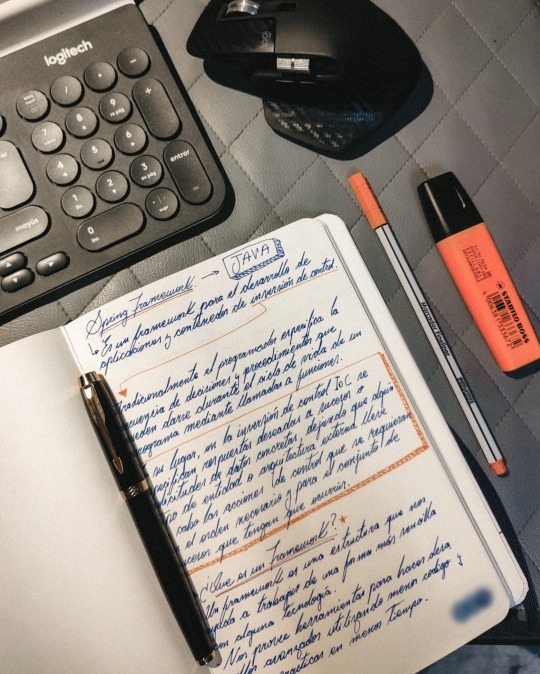 logitech
7
8
9
+
4
5
6
1
2
3
entrar
mayús
0
ins
JAVA
Spring Framework →
↳ Es un framework para el desarrollo de
aplicaciones y contenedor de inversión de control.
Tradicionalmente el programador especifica la
de decisiones y procedimientos que
darse durante el ciclo de vida de un
programa mediante llamadas a funciones.
su lugar, en la inversión de control IoC se
respuestas deseadas a sucesos o
solicitudes de datos concretas, dejando que algún
de entidad o arquitectura externa lleve
cabo las acciones de control que se requieran
el orden necesario y para el conjunto de
sucesos que tengan que ocurrir.
¿Que es un framework?
Un framework es una estructura que nos
ayuda a trabajar de una forma más sencilla
con alguna tecnología.
Nos provee herramientas para hacer
avanzados utilizando menos codigo y
en menos tiempo.
STABILO BOSS